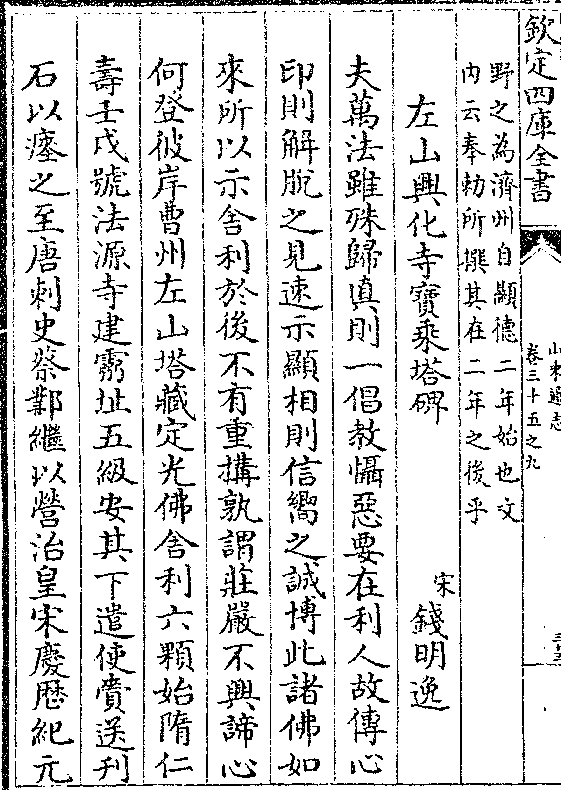 欽定四庫全書
山東通志
卷三十五之九
野之為濟州自顯德二年始也文
内云奉勅所撰其在二年之後乎
左山興化寺寳乘塔碑
宋
錢明逸
夫萬法雖殊歸真則一倡教懾惡要在利人故傳心
印則解脫之見速示顯相則信嚮之誠博此諸佛如
來所以示舍利於後不有重搆孰謂莊嚴不興諦心
何登彼岸曹州左山塔藏定光佛舍利六顆始隋仁
壽壬戌號法源寺建靈址五級安其下遣使賫送刋
石以瘞之至唐刺史蔡鄴繼以營治皇宋慶歴紀元